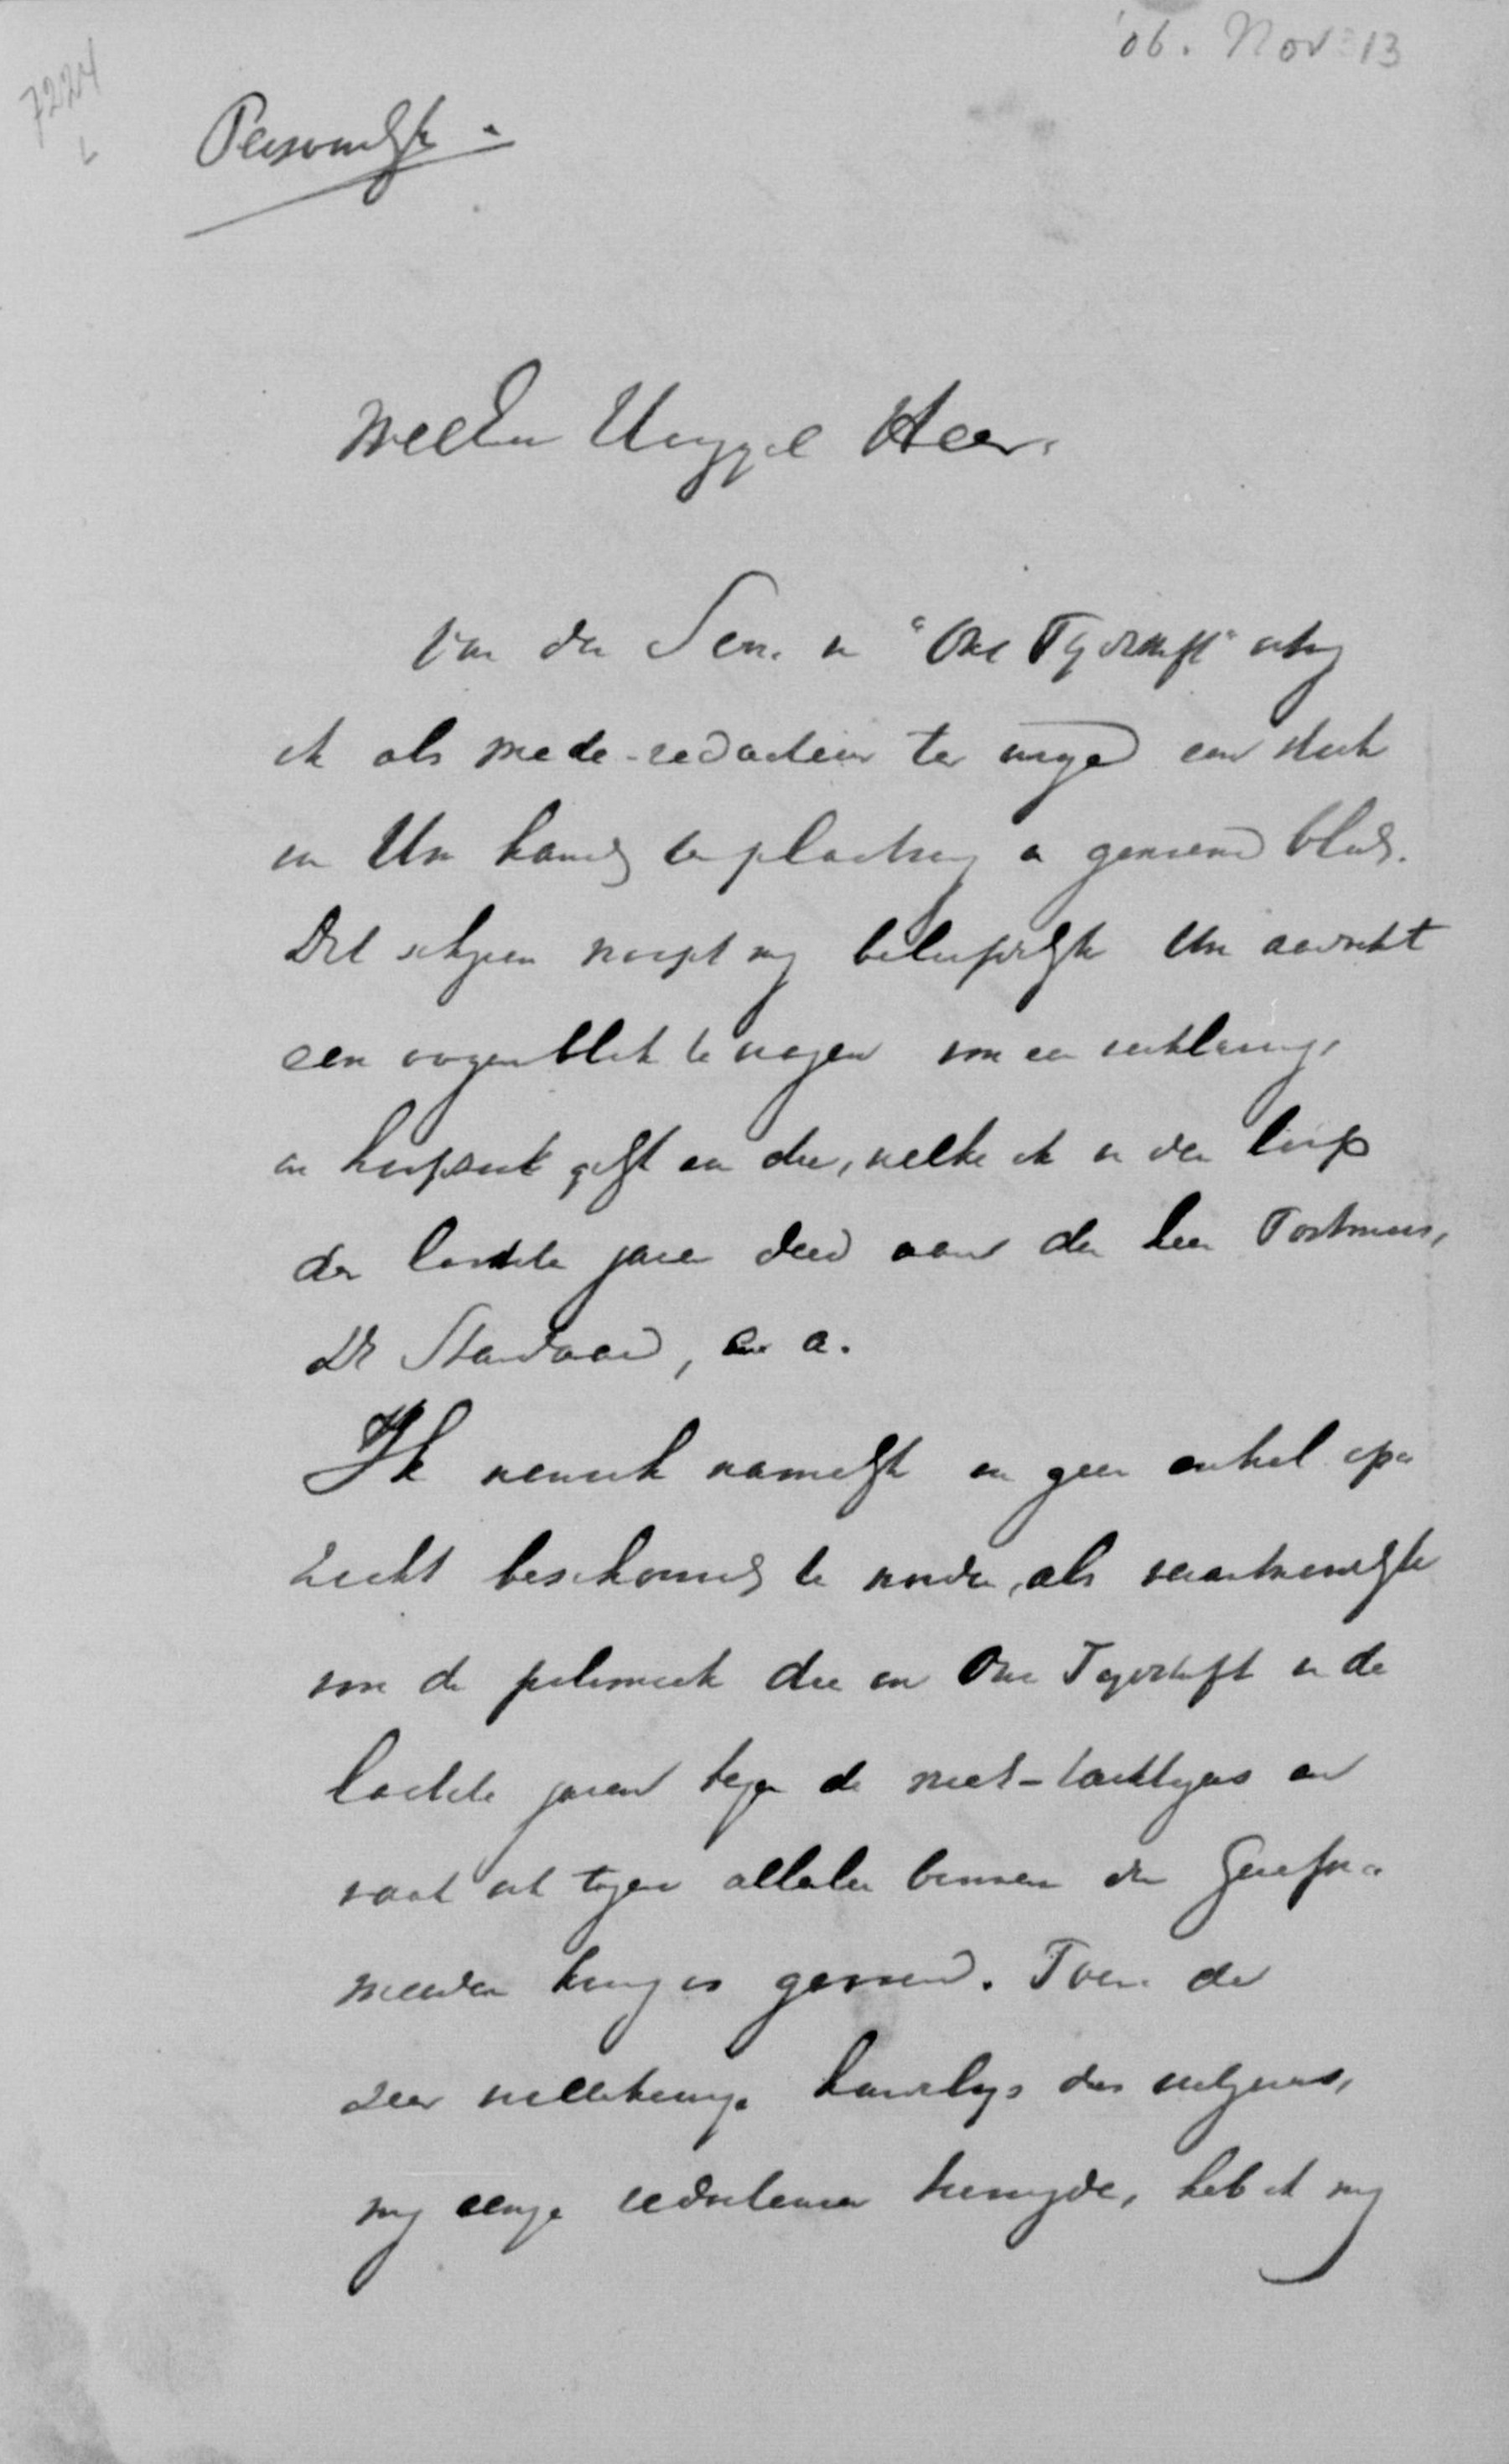 '06. Nov 13
7224
Persoonlijk.
WelEdn Heer.
Van den Secr. v "Ons Tijdschrift" ontving
ik als mede-redacteur ter inzage een stuk
van Uw hand, ter plaatsing in genoemd blad.
Dit schrijven noopt mij beleefdelijk Uw aandacht
een oogenblik te vragen voor een verklaring,
in hoofdzaak gelijk aan die, welke ik in den loop
der laatste jaren deed aan den heer Postmus,
De Standaard, e. a.
Ik wensch namelijk in geen enkel op-
zicht beschouwd te worden, als verantwoordelijk
voor de polemiek die in Ons Tijdschrift in de
laatste jaren tegen de niet-
wat al tegen allerlei binnen den Gerefor-
meerden kring is gevoerd. Toen de
zeer willekeurige handelwijs des uitgevers,
mij eenige redacteuren, heb ik mij